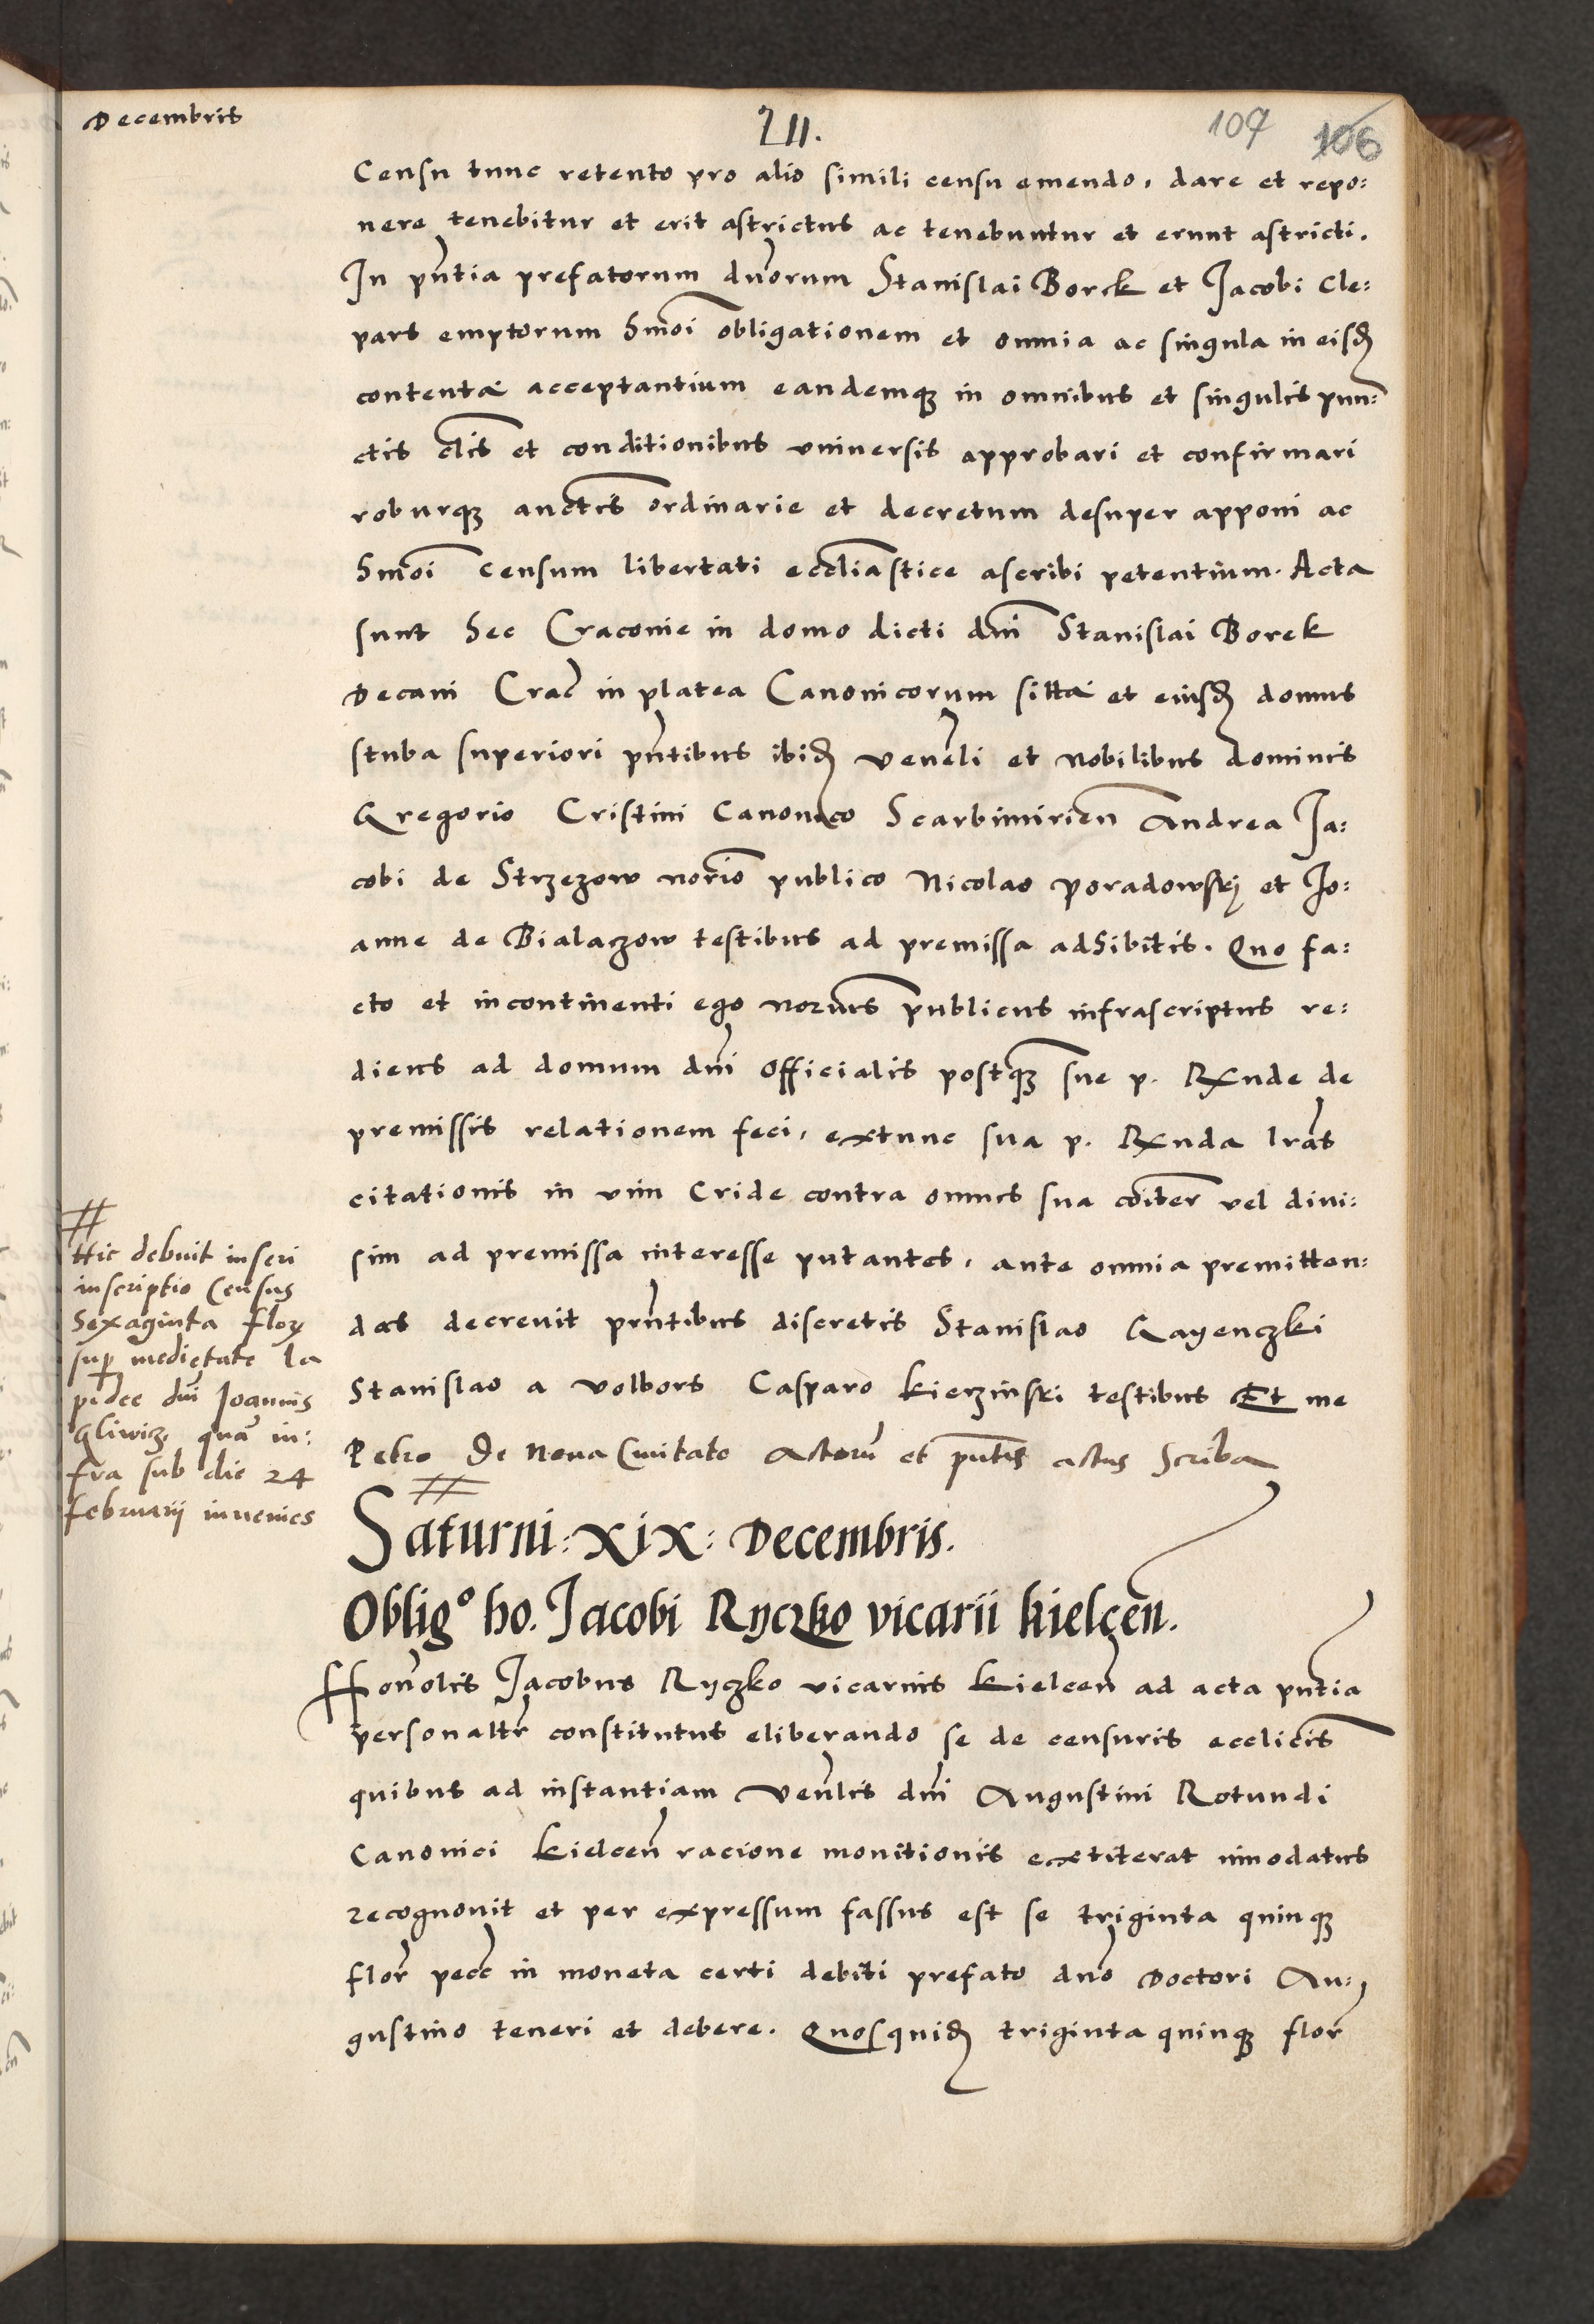 Decembris
211.
107 106
Censu tunc retento pro alio simili censu emendo, dare et repo:
nere tenebitur et erit astrictus ac tenebuntur et erunt astricti.
In pntia prefatorum dnorum Stanislai Borek et Jacobi Cle:
pars emptorum hmoi obligationem et omnia ac singula in eisd
contenta acceptantium eandemq in omnibus et singulis pun:
ctis clis et conditionibus universis approbari et confirmari
roburq auctris ordinarie et decretum desuper apponi ac
hmoi censum libertati ecclliastice ascribi petentium. Acta
sunt hec Cracovie in domo dicti dni Stanislai Borek
Decani Crac in platea Canonicorum sitta et eiusd domus
stuba superiori pntibus ibid venerli et nobilibus dominis
Gregorio Cristini Canonico Scarbimirien Andrea Ja:
cobi de Strzezow norio publico Nicolao Poradowskj et Jo:
anne de Bialaczow testibus ad premissa adhibitis. Quo fa:
cto et incontinenti ego norius publicus infrascriptus re:
diens ad domum dni Officialis postq sue p. Rxnde de
premissis relationem feci, extunc sua p. Rxnda lras
citationis in vim Cride contra omnes sua coiter vel divi:
sim ad premissa interesse putantes, ante omnia premitten:
das decrevit prntibus discretis Stanislao Gayenczki
Stanislao a volbors Casparo kierzinski testibus Et me
Petro De Nova Civitate Actoru et pntis actus Scriba
#
Hic debuit inseri
inscriptio Census
Sexaginta flor
sup medietate la
pidee dni Joannis
Gliwicz, qua in:
fra sub die 24
februarij invenies
#
Saturni: xix: Decembris.
Oblig° ho. Jacobi Ryczko vicarii kielcen.
Honolis Jacobus Ryczko vicarius kielcen ad acta pntia
personaltr constitutus eliberando se de censuris ecclicis
quibus ad instantiam venlis dni Augustini Rotundi
Canonici kielcen racione monitionis extiterat innodatus
recognovit et per expressum fassus est se triginta quinq
flor pecc in moneta certi debiti prefato dno Doctori Au:
gustino teneri et debere. Quosquid triginta quinq flor